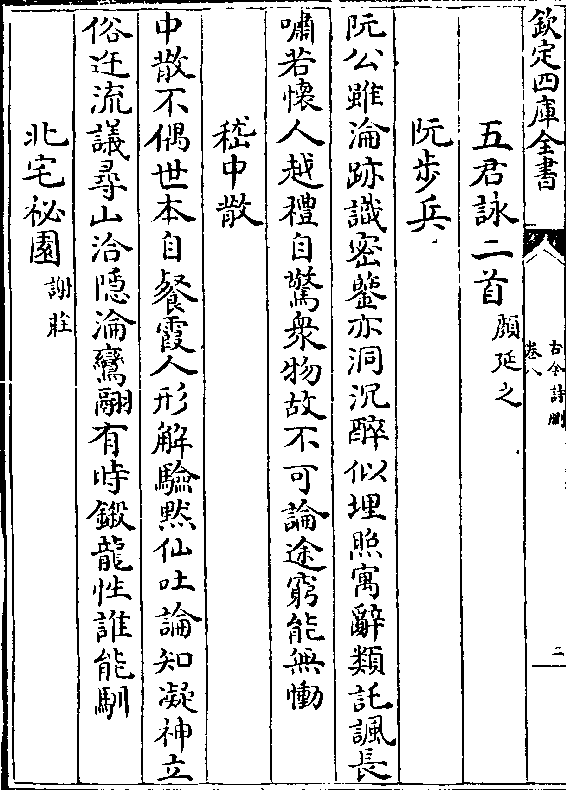 欽定四庫全書
古今詩刪
卷八
二
五君詠二首 顏延之
阮步兵
阮公雖淪跡識密鑒亦洞沉醉似埋照寓辭類託諷長
嘯若懷人越禮自驚衆物故不可論途窮能無慟
嵇中散
中散不偶世本自餐霞人形解驗黙仙吐論知凝神立
俗迕流議尋山洽隱淪鸞翮有時鎩龍性誰能馴
北宅祕園 謝莊